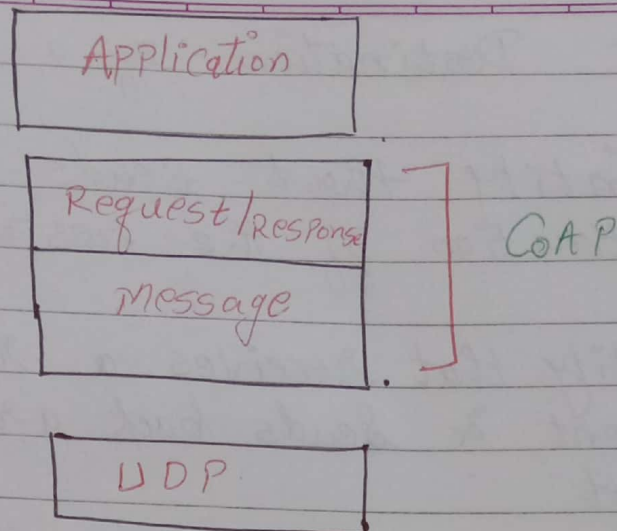 Application
Request/Response
CoAP
Message
UDP